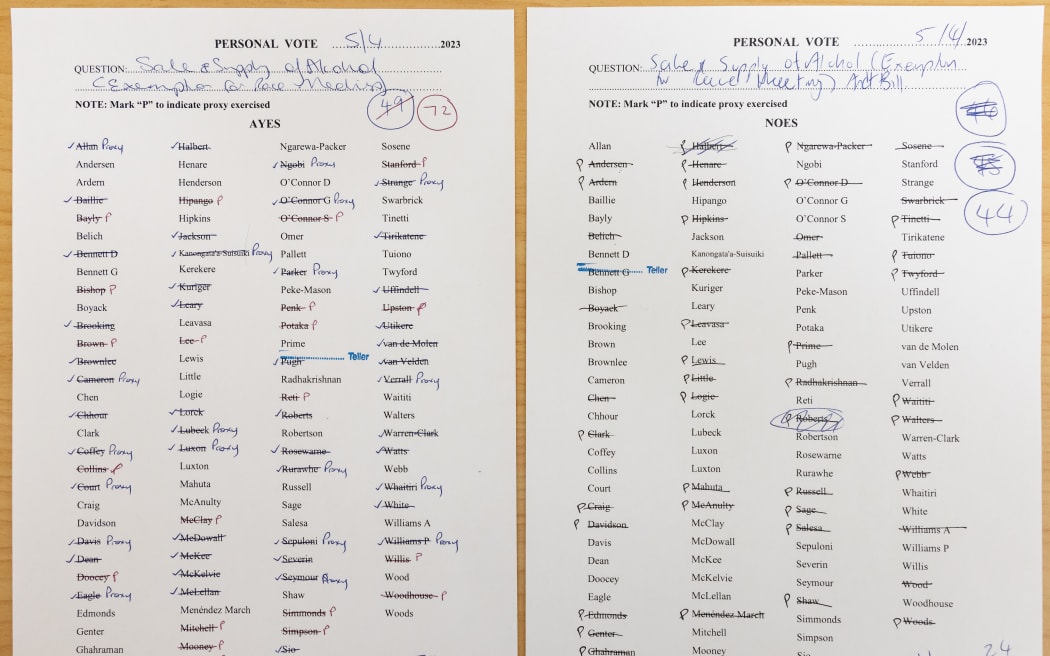 PERSONAL VOTE 5/4 2023
QUESTION: Sale & Supply of Alcohol
(Exemption for Race
NOTE: Mark "P" to indicate proxy exercised
49 72
AYES
Allan Proxy
Andersen
Ardern
Baillie
Bayly P
Belich
Bennett D
Bennett G
Bishop P
Boyack
Brooking
Brown P
Brownlee
Cameron Proxy
Chen
Chhour
Clark
Coffey Proxy
Collins P
Court Proxy
Craig
Davidson
Davis Proxy
Dean
Doocey P
Eagle Proxy
Edmonds
Genter
Ghahraman
Halbert
Henare
Henderson
Hipango P
Hipkins
Jackson
Kanongata'a-Suisuiki Proxy
Kerekere
Kuriger
Leary
Leavasa
Lee P
Lewis
Little
Logie
Lorck
Lubeck Proxy
Luxon Proxy
Luxton
Mahuta
McAnulty
McClay P
McDowall
McKee
McKelvie
McLellan
Menéndez March
Mitchell P
Mooney P
Ngarewa-Packer
Ngobi Proxy
O'Connor D
O'Connor G Proxy
O'Connor S P
Omer
Pallett
Parker Proxy
Peke-Mason
Penk P
Potaka P
Prime
Pugh Teller
Radhakrishnan
Reti P
Roberts
Robertson
Rosewarne
Rurawhe Proxy
Russell
Sage
Salesa
Sepuloni Proxy
Severin
Seymour Proxy
Shaw
Simmonds P
Simpson P
Sio
Sosene
Stanford P
Strange Proxy
Swarbrick
Tinetti
Tirikatene
Tuiono
Twyford
Uffindell
Upston P
Utikere
van de Molen
van Velden
Verrall Proxy
Waititi
Walters
Warren-Clark
Watts
Webb
Whaitiri Proxy
White
Williams A
Williams P Proxy
Willis P
Wood
Woodhouse P
Woods
PERSONAL VOTE 5/4/ 2023
QUESTION: Sale & Supply of Alcohol (Exemption
for Race Meeting) Bill
NOTE: Mark "P" to indicate proxy exercised
44
NOES
Allan
P Andersen
P Ardern
Baillie
Bayly
Belich
Bennett D
Bennett G Teller
Bishop
Boyack
Brooking
Brown
Brownlee
Cameron
Chen
Chhour
P Clark
Coffey
Collins
Court
P Craig
P Davidson
Davis
Dean
Doocey
Eagle
P Edmonds
P Genter
P Ghahraman
P Halbert
P Henare
P Henderson
Hipango
P Hipkins
Jackson
Kanongata'a-Suisuiki
P Kerekere
Kuriger
Leary
P Leavasa
Lee
P Lewis
P Little
P Logie
Lorck
Lubeck
Luxon
Luxton
P Mahuta
P McAnulty
McClay
McDowall
McKee
McKelvie
McLellan
P Menéndez March
Mitchell
Mooney
P Ngarewa-Packer
Ngobi
P O'Connor D
O'Connor G
O'Connor S
Omer
Pallett
Parker
Peke-Mason
Penk
Potaka
P Prime
Pugh
P Radhakrishnan
Reti
P Roberts
Robertson
Rosewarne
Rurawhe
P Russell
P Sage
P Salesa
Sepuloni
Severin
Seymour
P Shaw
Simmonds
Simpson
Sio
Sosene
Stanford
Strange
Swarbrick
P Tinetti
Tirikatene
P Tuiono
P Twyford
Uffindell
Upston
Utikere
van de Molen
van Velden
Verrall
P Waititi
P Walters
Warren-Clark
Watts
P Webb
Whaitiri
White
Williams A
Williams P
Willis
Wood
Woodhouse
P Woods
24